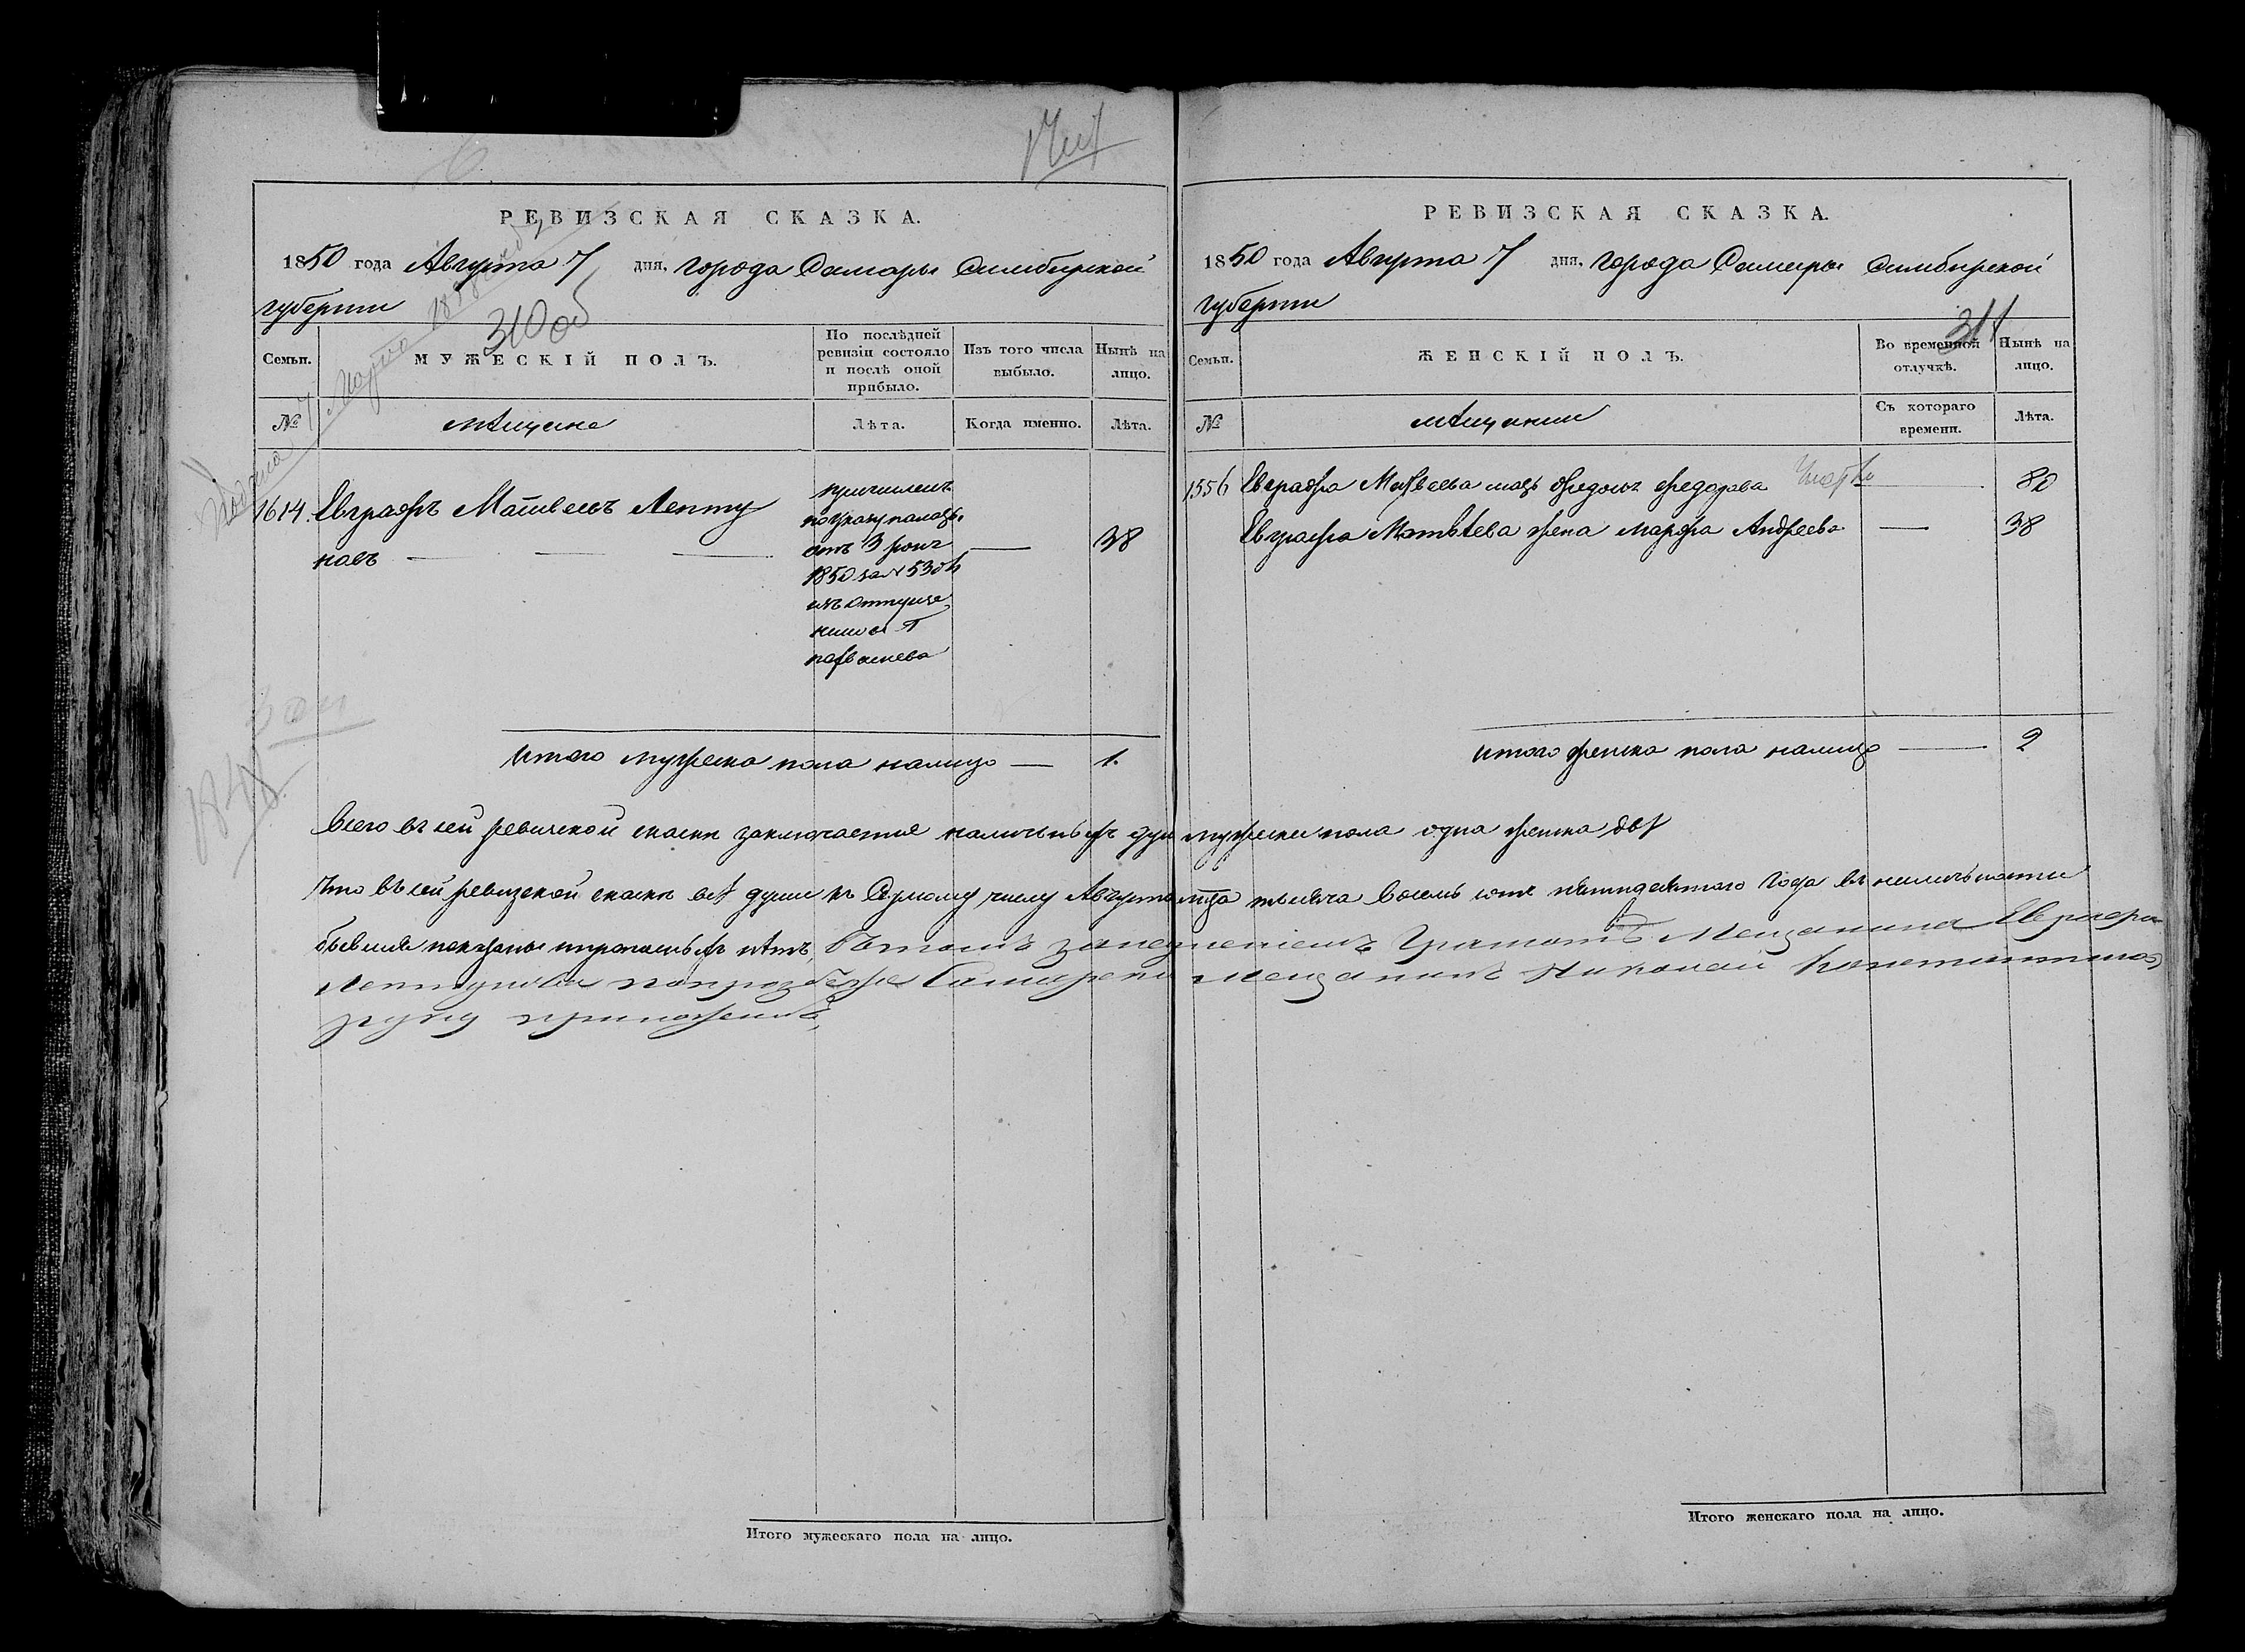 РЕВИЗСКАЯ СКАЗКА.
1850 года Августа 7 дня, города Самары Симбирской
губернии
310 об
Семьи.
МУЖЕСКІЙ ПОЛЪ.
По послѣдней
ревизіи состояло
и послѣ оной
прибыло.
Изъ того числа
выбыло.
Нынѣ на
лицо.
№
мѣщане
Лѣта.
Когда именно.
Лѣта.
1614. Евграфъ Матвеевъ Лепту
новъ
причисленъ
по указу палаты
отъ 3 юня
1850 за №
изъ отпуще
38
Итого мужеска пола налицо — 1.
Итого мужескаго пола на лицо.
РЕВИЗСКАЯ СКАЗКА.
1850 года Августа 7 дня, города Самары Симбирской
губернии
311
Семьи.
ЖЕНСКІЙ ПОЛЪ.
Во временной
отлучкѣ.
Нынѣ на
лицо.
№
мѣщанки
Съ котораго
времени.
Лѣта.
1556 Евграфа Матвеева мать Федорова — 80
Евграфа Матвѣева жена Марфа Андреева — 38
Итого женска пола налицо — 2
Всего въ сей ревизской скаскѣ заключается наличныхъ душъ мужеска пола одна женска двѣ
Что въ сей ревизской скаскѣ всѣ души къ Седмому числу Августа мца тысяча восемь сотъ пятидесятого года въ наличъности
бывшие показаны и прописныхъ нѣтъ, Въ томъ Мещанина Евграфа
Лептунова попрозбеего Самарски мещанинъ Николай
руку приложилъ,
Итого женскаго пола на лицо.